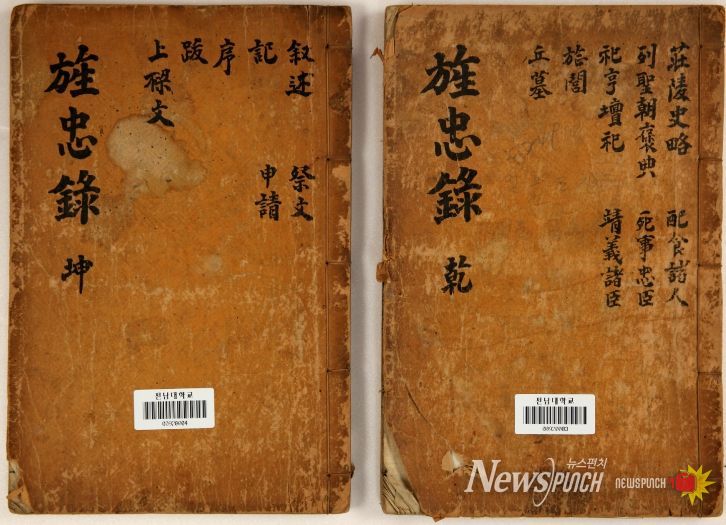 莊陵史略 配食諸人
列聖朝褒典 死事忠臣
祀享壇祀 靖義諸臣
旌閭
丘墓
旌忠錄 乾
전남대학교
叙述 祭文
記 申請
序
跋
上樑文
旌忠錄 坤
전남대학교
뉴스펀치
NEWSPUNCH
NEWSPUNCH